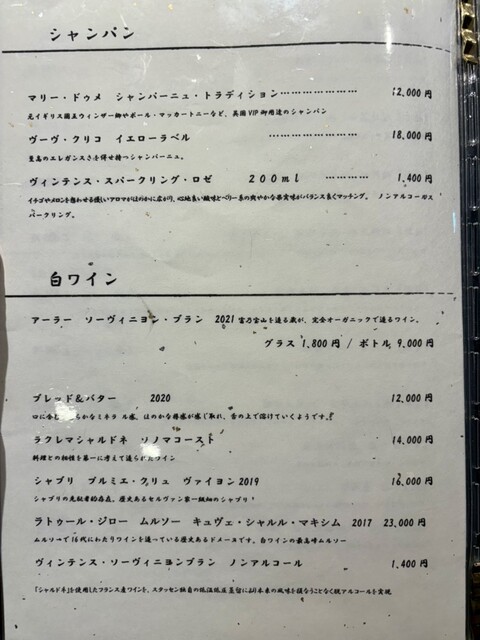 シャンパン
マリー・ドゥメ シャンパーニュ・トラディション………………… 12,000円
元イギリス国王ウィンザー卿やポール・マッカートニーなど、英国VIP御用達のシャンパン
ヴーヴ・クリコ イエローラベル ………………… 18,000円
至高のエレガンスさを併せ持つシャンパーニュ。
ヴィンテンス・スパークリング・ロゼ 200ml ………… 1,400円
イチゴやメロンを想わせる優しいアロマがほのかに広がり、心地良い酸味とベリー系の爽やかな果実味がバランス良くマッチング。 ノンアルコールス
パークリング。
白ワイン
アーラー ソーヴィニヨン・ブラン 2021 富乃宝山を造る蔵が、完全オーガニックで造るワイン。
グラス 1,800円 / ボトル 9,000円
ブレッド&バター 2020 12,000円
口に含む らかなミネラル感、ほのかな樽感が感じ取れ、舌の上で溶けていくようです。
ラクレマシャルドネ ソノマコースト 14,000円
料理との相性を第一に考えて造られたワイン
シャブリ プルミエ・クリュ ヴァイヨン2019 16,000円
シャブリの先駆者的存在。歴史あるセルヴァン家一級畑のシャブリ
ラトゥール・ジロー ムルソー キュヴェ・シャルル・マキシム 2017 23,000円
ムルソーで16代にわたりワインを造っている歴史あるドメーヌです。白ワインの最高峰ムルソー
ヴィンテンス・ソーヴィニヨンブラン ノンアルコール 1,400円
「シャルドネ」を使用したフランス産ワインを、スタッセン独自の低温低圧蒸留により本来の風味を損なうことなく脱アルコールを実現